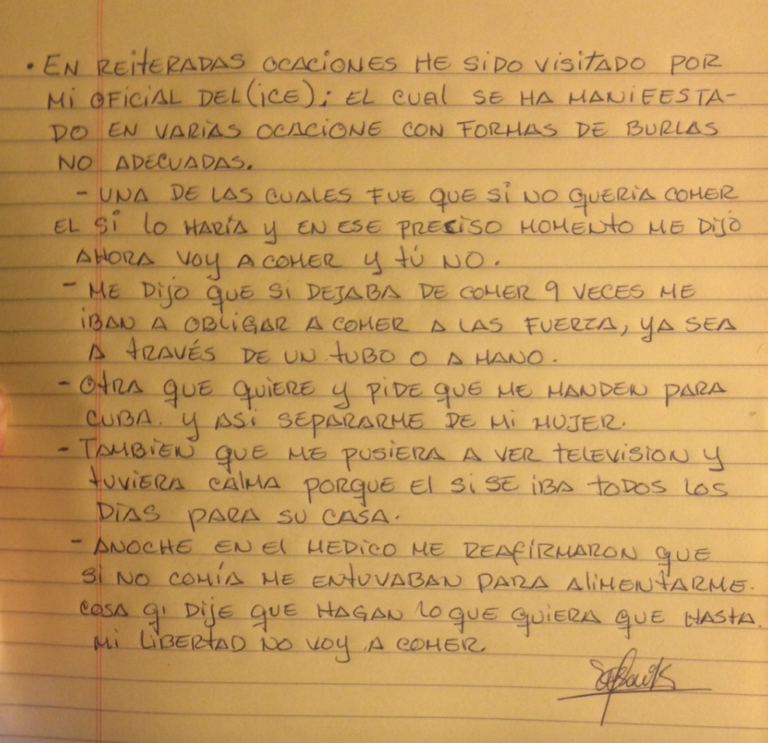 • EN REITERADAS OCACIONES HE SIDO VISITADO POR
MI OFICIAL DEL (ICE); EL CUAL SE HA MANIFESTA-
DO EN VARIAS OCACIONE CON FORMAS DE BURLAS
NO ADECUADAS.
- UNA DE LAS CUALES FUE QUE SI NO QUERIA COMER
EL SI LO HARÍA Y EN ESE PRECISO MOMENTO ME DIJO
AHORA VOY A COMER Y TÚ NO.
- ME DIJO QUE SI DEJABA DE COMER 9 VECES ME
IBAN A OBLIGAR A COMER A LAS FUERZA, YA SEA
A TRAVÉS DE UN TUBO O A MANO.
- OTRA QUE QUIERE Y PIDE QUE ME MANDEN PARA
CUBA. Y ASI SEPARARME DE MI MUJER.
- TAMBIEN QUE ME PUSIERA A VER TELEVISION Y
TUVIERA CALMA PORQUE EL SI SE IBA TODOS LOS
DÍAS PARA SU CASA.
- ANOCHE EN EL MEDICO ME REAFIRMARON QUE
SI NO COMÍA ME ENTUVABAN PARA ALIMENTARME.
COSA Q' DIJE QUE HAGAN LO QUE QUIERA QUE HASTA
MI LIBERTAD NO VOY A COMER.